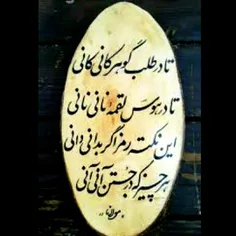 تا در طلب گوهر کانی کانی
تا در هوس لقمهٔ نانی نانی
این نکته رمز اگر بدانی دانی
هر چیز که در جستن آنی آنی
،، مولانا ،،